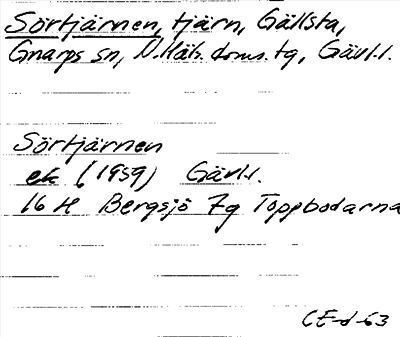 Sörtjärnen, tjärn, Gällsta,
Gnarps sn, N.Häls. doms. tg, Gävl.l.
Sörtjärnen
ek (1959) Gävl.l.
16 H Bergsjö 7g Toppbodarna
CE-d-63